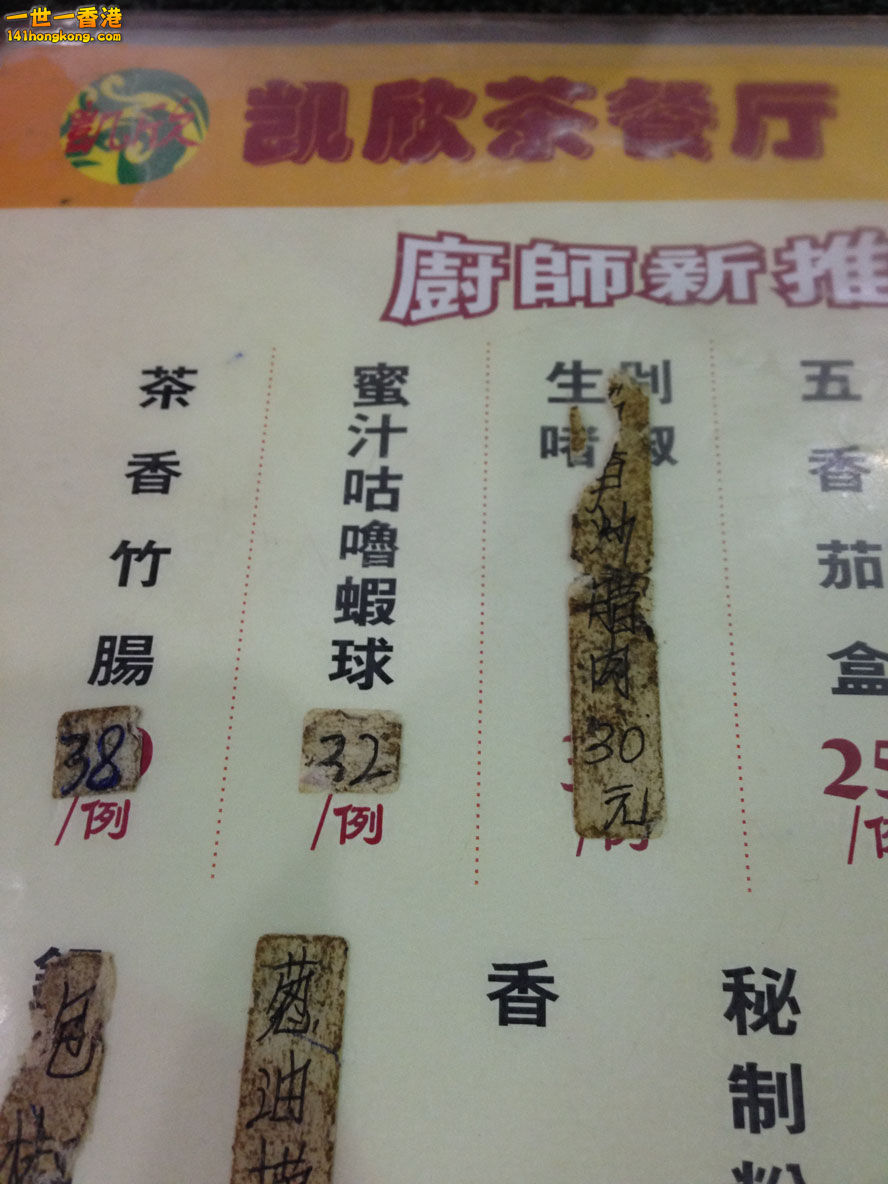 一世一香港
141hongkong.com
凯欣
凯欣茶餐厅
廚師新推
茶香竹腸
38
/例
蜜汁咕嚕蝦球
32
/例
生啫
剁椒
炒
肉
30
元
/例
五香茄盒
25
/例
包
葱油
香
秘制粉